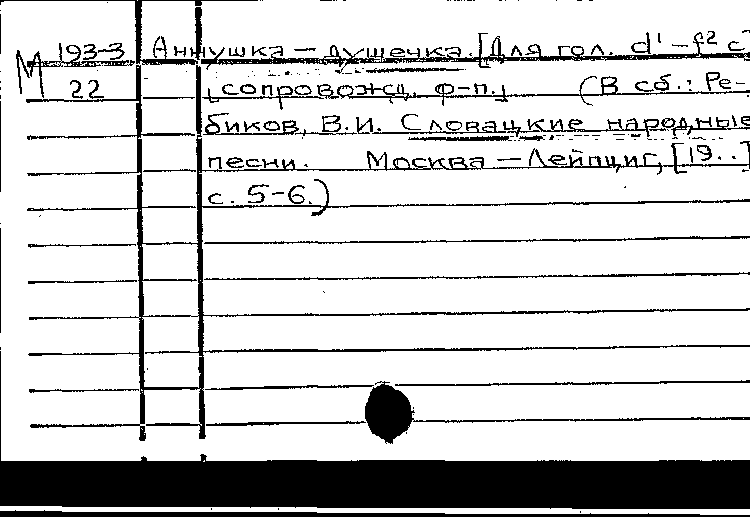 М 193-3 Аннушка – душечка. [Для гол. d¹ – f² с
22 [сопровожд. ф-п.] (В сб.: Ре-
биков, В.И. Словацкие народные
песни. Москва – Лейпциг, [19..]
с. 5-6.)